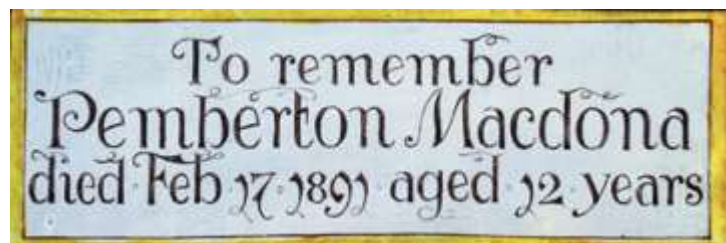 To remember
Pemberton Macdona
died Feb 17·1891 aged·12·years